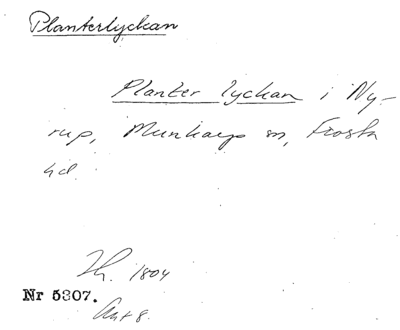 Planterlyckan
Planter lyckan i Ny-
rup, Munkarp sn, Frosta
hd.
1804
Nr 5307.
Akt 8.